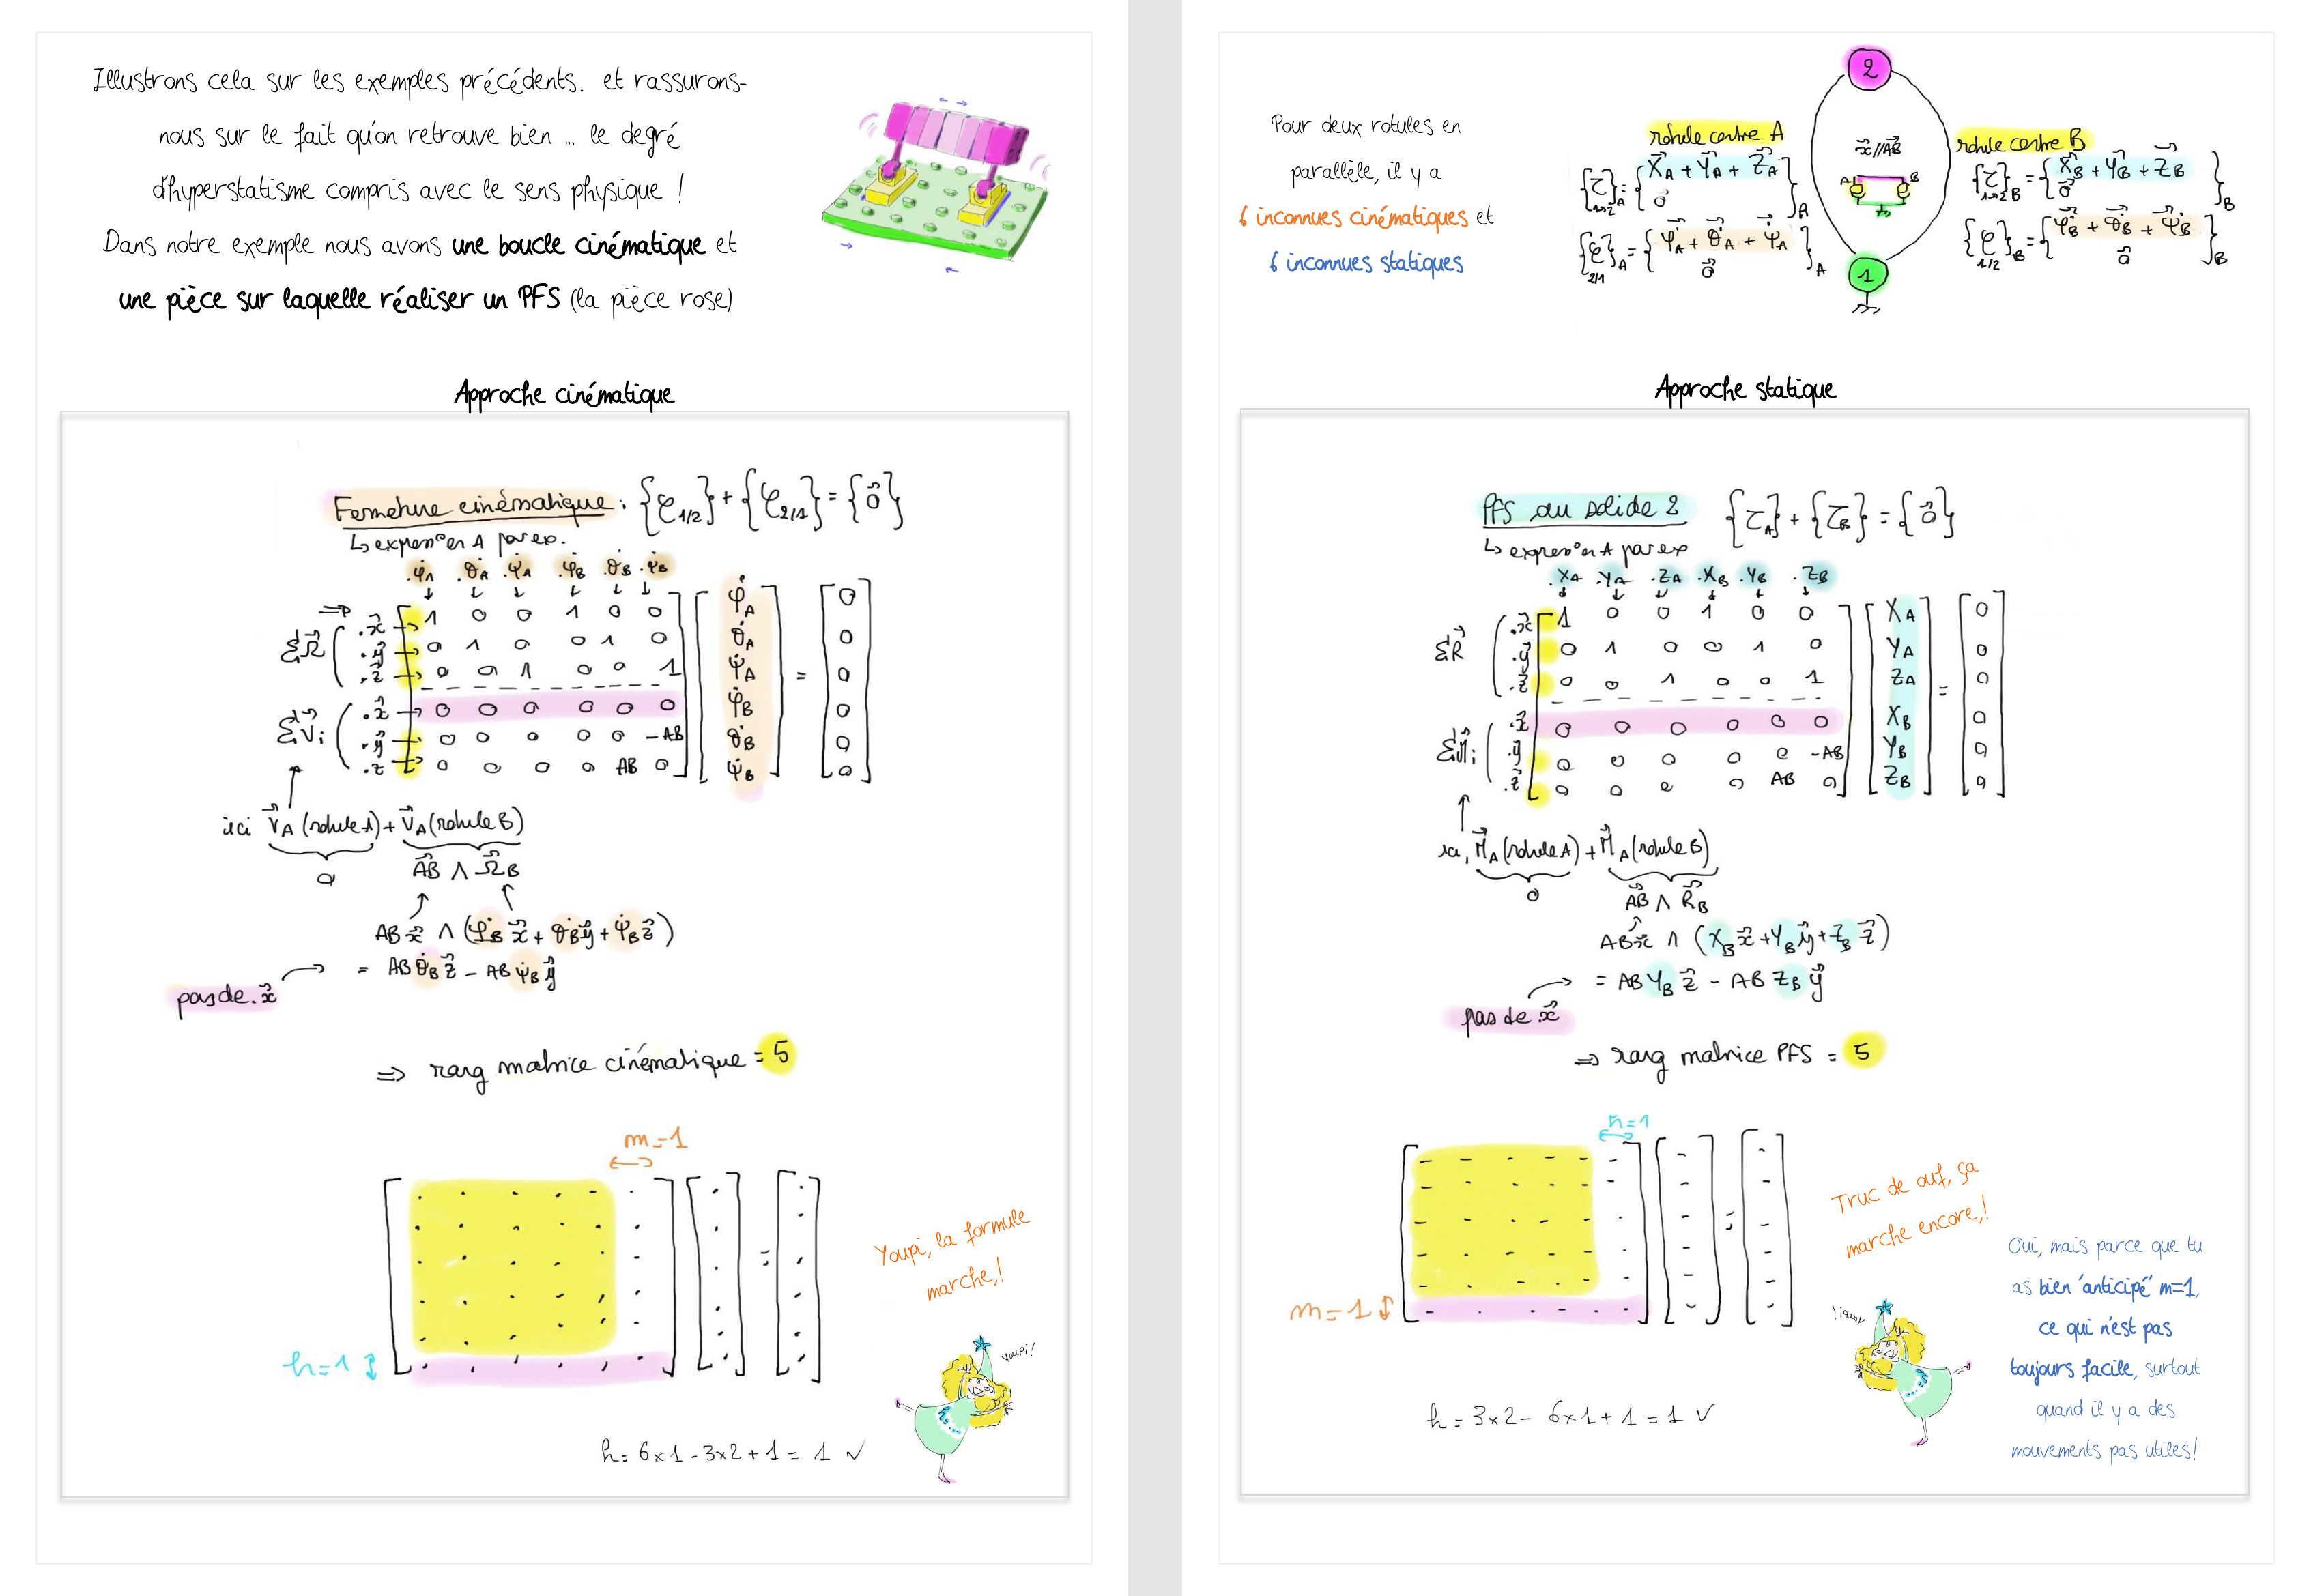 Illustrons cela sur les exemples précédents. et rassurons-
nous sur le fait qu'on retrouve bien ... le degré
d'hyperstatisme compris avec le sens physique !
Dans notre exemple nous avons une boucle cinématique et
une pièce sur laquelle réaliser un PFS (la pièce rose)
Approche cinématique
Fermeture cinématique : {𝒱1/2} + {𝒱2/1} = {0⃗}
↳ express°en A par ex.
.φ̇A .θ̇A .ψ̇A .φ̇B .θ̇B .ψ̇B
ΣΩ⃗ ( .x⃗ → [ 1 0 0 1 0 0 ] [ φ̇A ] = [ 0 ]
.y⃗ → 0 1 0 0 1 0 θ̇A 0
.z⃗ → 0 0 1 0 0 1 ψ̇A 0
ΣV⃗i ( .x⃗ → 0 0 0 0 0 0 φ̇B 0
.y⃗ → 0 0 0 0 0 -AB θ̇B 0
.z⃗ → 0 0 0 0 AB 0 ψ̇B 0
ici V⃗A (rotule A) + V⃗A (rotule B)
0 AB⃗ ∧ Ω⃗B
AB x⃗ ∧ (φ̇B x⃗ + θ̇B y⃗ + ψ̇B z⃗)
= AB θ̇B z⃗ - AB ψ̇B y⃗
pas de .x⃗
⇒ rang matrice cinématique = 5
m=1
h=1
Youpi, la formule
marche,!
Youpi!
h = 6×1 - 3×2 + 1 = 1 ✓
Pour deux rotules en
parallèle, il y a
6 inconnues cinématiques et
6 inconnues statiques
2
rotule centre A
{τ1→2}A = { X⃗A + Y⃗A + Z⃗A / 0⃗ }A
{𝒱2/1}A = { φ̇⃗A + θ̇⃗A + ψ̇⃗A / 0⃗ }A
x⃗//AB⃗
A B
1
rotule centre B
{τ1→2}B = { X⃗B + Y⃗B + Z⃗B / 0⃗ }B
{𝒱1/2}B = { φ̇⃗B + θ̇⃗B + ψ̇⃗B / 0⃗ }B
Approche statique
PFS au solide 2 {τA} + {τB} = {0⃗}
↳ express°en A par ex
.XA .YA .ZA .XB .YB .ZB
ΣR⃗ ( .x⃗ [ 1 0 0 1 0 0 ] [ XA ] = [ 0 ]
.y⃗ 0 1 0 0 1 0 YA 0
.z⃗ 0 0 1 0 0 1 ZA 0
ΣM⃗i ( .x⃗ 0 0 0 0 0 0 XB 0
.y⃗ 0 0 0 0 0 -AB YB 0
.z⃗ 0 0 0 0 AB 0 ZB 0
ici, M⃗A (rotule A) + M⃗A (rotule B)
0 AB⃗ ∧ R⃗B
AB x⃗ ∧ (XB x⃗ + YB y⃗ + ZB z⃗)
= AB YB z⃗ - AB ZB y⃗
pas de .x⃗
⇒ rang matrice PFS = 5
h=1
m=1
Truc de ouf, ça
marche encore,!
Youpi!
Oui, mais parce que tu
as bien 'anticipé' m=1,
ce qui n'est pas
toujours facile, surtout
quand il y a des
mouvements pas utiles!
h = 3×2 - 6×1 + 1 = 1 ✓